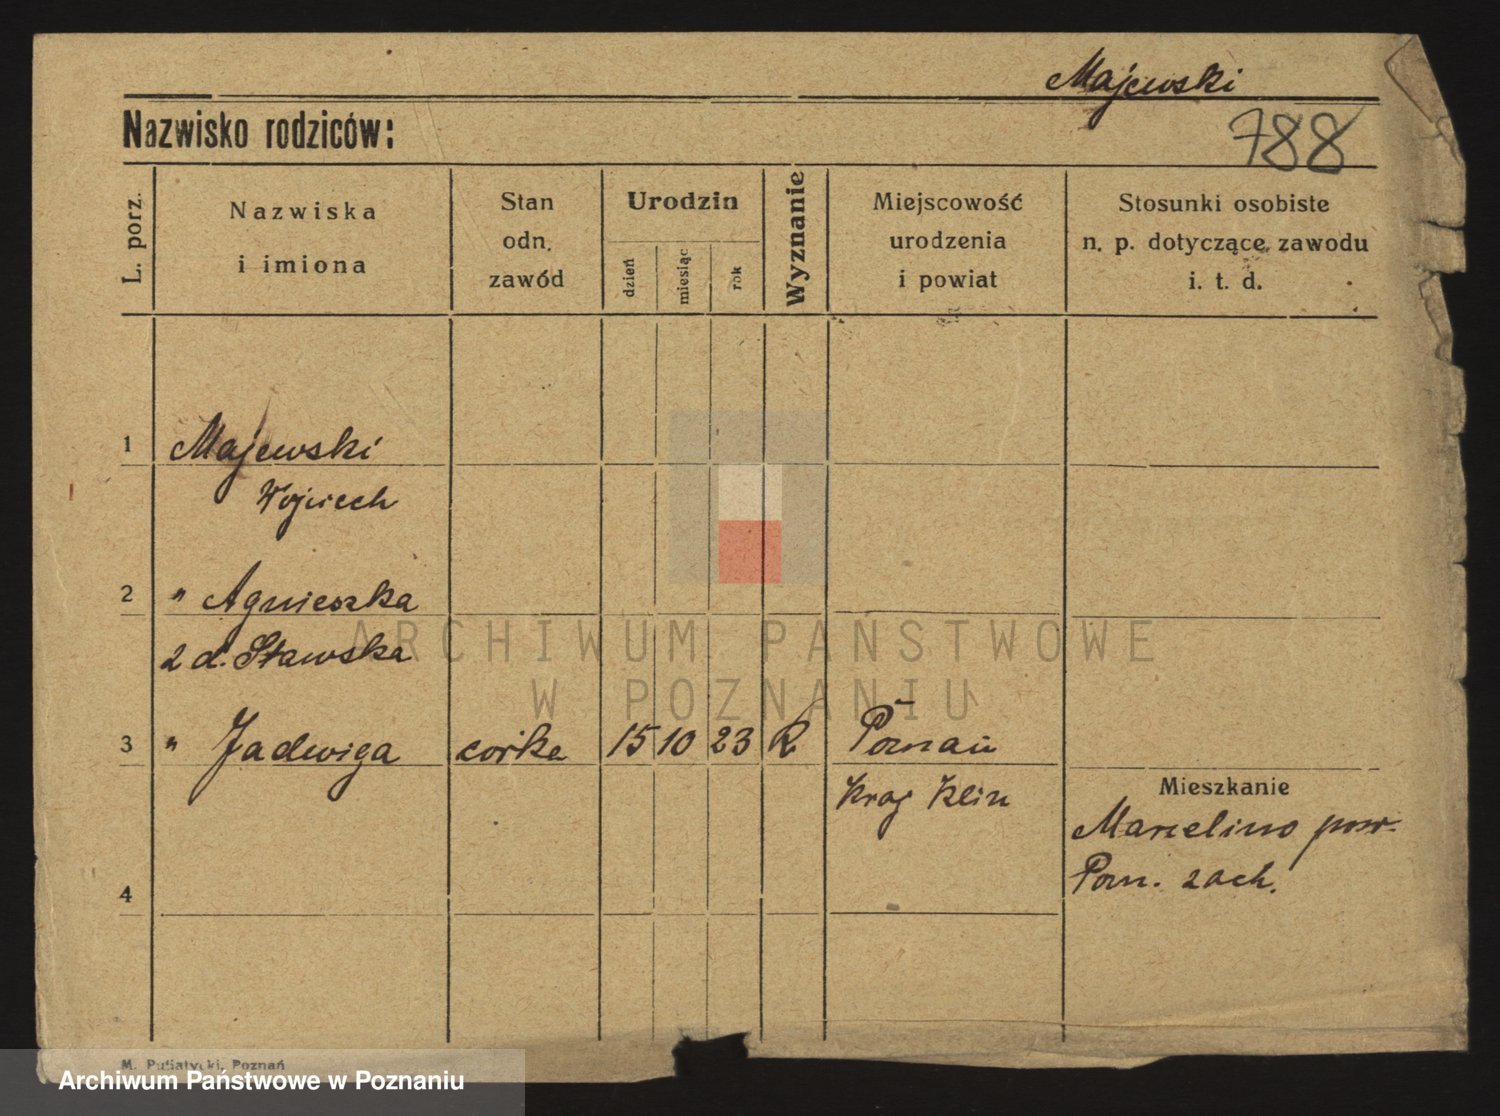 Majewski
Nazwisko rodziców:
788
L. porz.
Nazwiska
i imiona
Stan
odn.
zawód
Urodzin
dzień
miesiąc
rok
Wyznanie
Miejscowość
urodzenia
i powiat
Stosunki osobiste
n. p. dotyczące zawodu
i. t. d.
1 Majewski
Wojciech
2 " Agnieszka
2 d. Stawska
3 " Jadwiga córka 15 10 23 R Poznań
Kraj Klin
Mieszkanie
Marcelino pow.
Pozn. zach.
4
ARCHIWUM PAŃSTWOWE
W POZNANIU
M. Putiatycki, Poznań
Archiwum Państwowe w Poznaniu